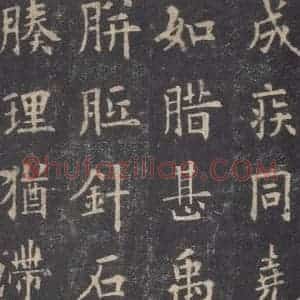 成疾同堯
如腊甚禹
胼胝針石
腠理猶滯
Shufaziliao.COM